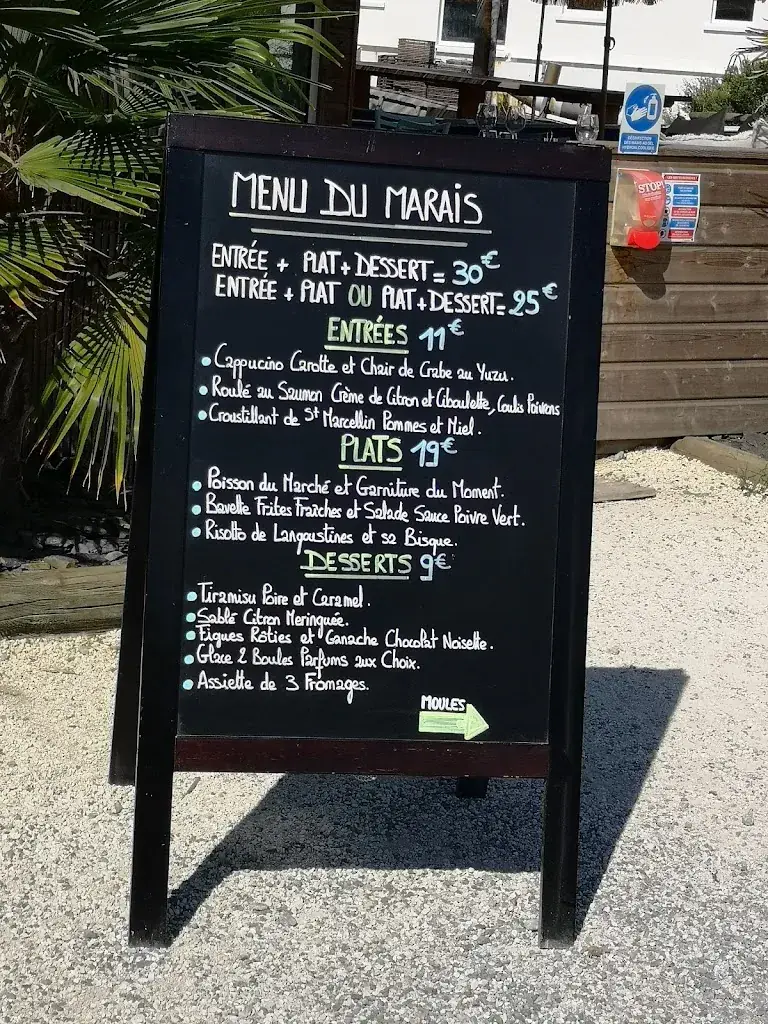 MENU DU MARAIS
ENTRÉE + PLAT + DESSERT = 30€
ENTRÉE + PLAT OU PLAT + DESSERT = 25€
ENTRÉES 11€
• Cappucino Carotte et Chair de Crabe au Yuzu.
• Roulé au Saumon Crème de Citron et Ciboulette, Coulis Poivrons
• Croustillant de St Marcellin Pommes et Miel.
PLATS 19€
• Poisson du Marché et Garniture du Moment.
• Bavette Frites Fraîches et Salade Sauce Poivre Vert.
• Risotto de Langoustines et sa Bisque.
DESSERTS 9€
• Tiramisu Poire et Caramel.
• Sablé Citron Meringuée.
• Figues Rôties et Ganache Chocolat Noisette.
• Glace 2 Boules Parfums aux Choix.
• Assiette de 3 Fromages.
MOULES
STOP